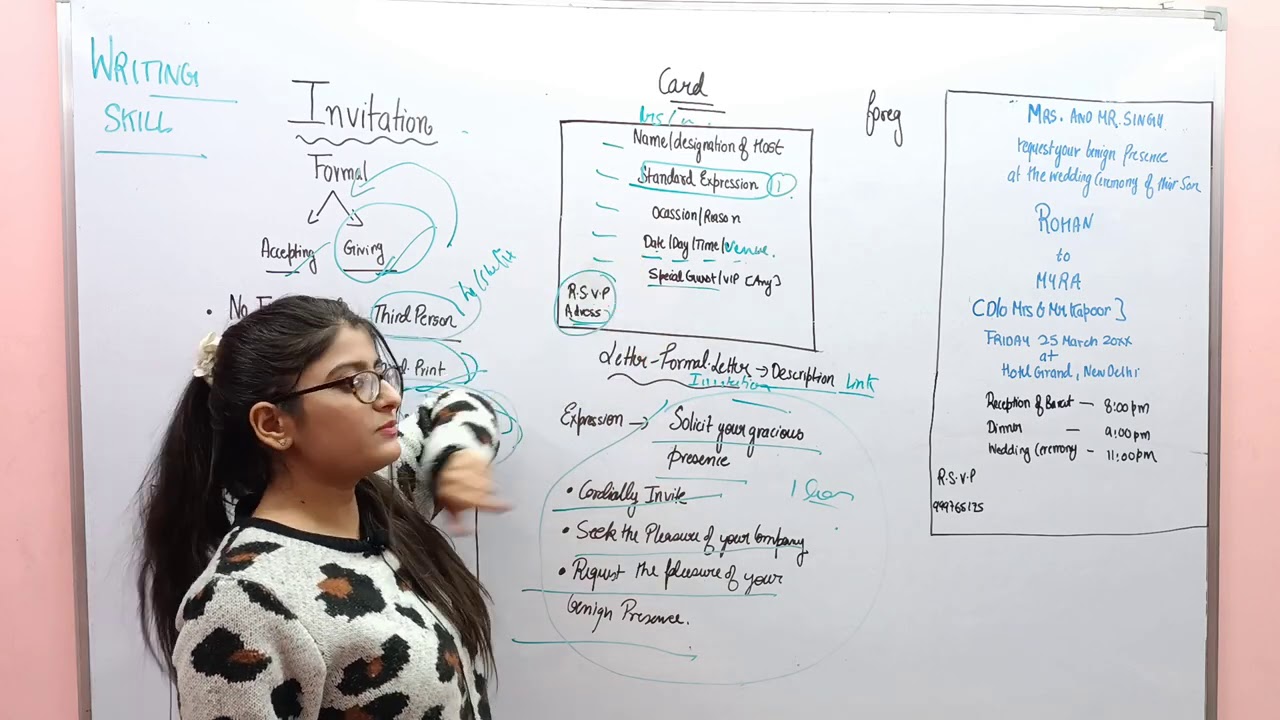 WRITING
SKILL
Invitation
Formal
Accepting
Giving
• No
Third Person
Print
Card
Name/designation of Host
Standard Expression
Ocassion/Reason
Date/Day/Time/Venue
Special Guest/VIP [Any]
R.S.V.P
Adress
Letter-Formal-Letter → Description
Invitation
Expression → Solicit your gracious
presence
• Cordially Invite
• Seek the Pleasure of your Company
• Request the pleasure of your
benign Presence.
foreg
MRS. AND MR. SINGH
request your benign presence
at the wedding ceremony of their Son
ROHAN
to
MYRA
(D/o Mrs & Mr. Kapoor]
FRIDAY 25 March 20xx
at
Hotel Grand, New Delhi
Reception of Barat — 8:00 pm
Dinner — 9:00 pm
Wedding Ceremony - 11:00 pm
R.S.V.P
999765125